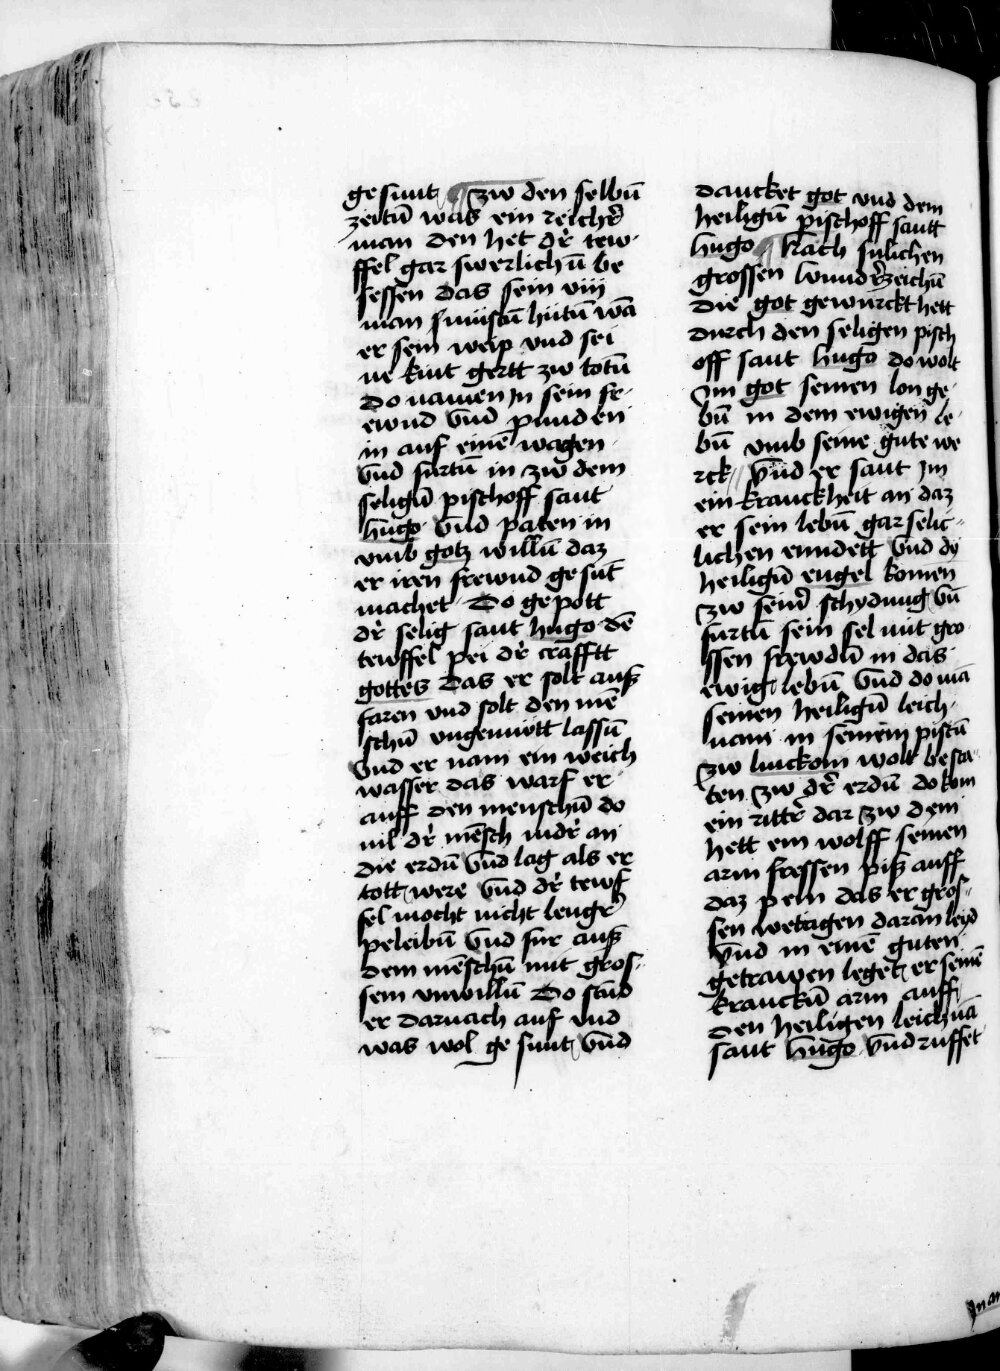 gesunt ¶ Zw den selbū
zeitū was ein reichr̄
man den het dr̄ tew
ffel gar swerlichū be
sessen das sein viii
man mūstū hütū wā
er sein weip vnd sei
ne kint gertt zw totū
Do namen jn sein fr
ewnd vnd punden
in auf einē wagen
vnd furtū in zw dem
seligū pischoff sant
hugo vnd paten in
vmb gotz willū daz
er iren frewnd gesūt
machet Do gepott
dr̄ selig sant hugo dē
tewffel pei dr̄ crafftt
gottes das er solt auß
faren vnd solt den mē
schū vngemütt lassū
vnd er nam ein weich
wasser das warf er
auff den menschū do
vil dr̄ mēsch nidr̄ an
die erdū vnd lag als er
tott were vnd dr̄ tewf
fel mocht nicht lengr̄
peleibū vnd fur auß
dem mēschū mit gros
sem vnwillū Do stūd
er darnach auf vnd
was wol gesunt vnd
dancket got vnd dem
heiligū pischoff santt
hugo ¶ Nach sulichen
grossen wundr̄zeichū
die got gewurckt hett
durch den seligen pisch
off sant hugo do wolt
im got seinen lon ge
bū in dem ewigen le
bū vmb seine gute we
rck vnd er sant im
ein kranckheit an daz
er sein lebū gar selic
lichen enndett vnd dy
heiligū engel komen
zw seinr̄ schydung vū
furtū sein sel mit gro
ssen frewdū in das
ewig lebū vnd do mā
seinen heiligū leich
nam in seinem pistū
zw linckom wolt besta
ten zw dr̄ erdū do kom
ein rittr̄ dar zw dem
hett ein wolff seinen
arm fressen piß auff
daz pein das er gros
sen wetagen daran leyd
vnd in einē guten
getrawen leget er seinē
kranckū arm auff
den heiligen leichnā
sant hugo vnd ruffet